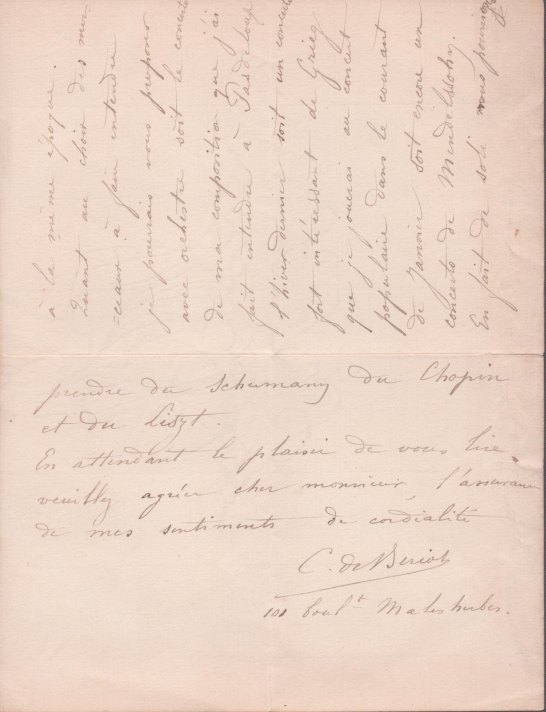 à la même époque.
Quant au choix des mor-
-ceaux à faire entendre
je pourrais vous proposer
avec orchestre soit le concerto
de ma composition que j'ai
fait entendre à Pasdeloup
l'hiver dernier soit un concerto
fort intéressant de Grieg
que je jouerai au concert
populaire dans le courant
de Janvier soit encore un
concerto de Mendelssohn.
En fait de soli nous pourrions
prendre du Schumann du Chopin
et du Liszt.
En attendant le plaisir de vous lire
veuillez agréer cher monsieur, l'assurance
de mes sentiments de cordialité
C. de Bériot
101 boul^t Malesherbes.